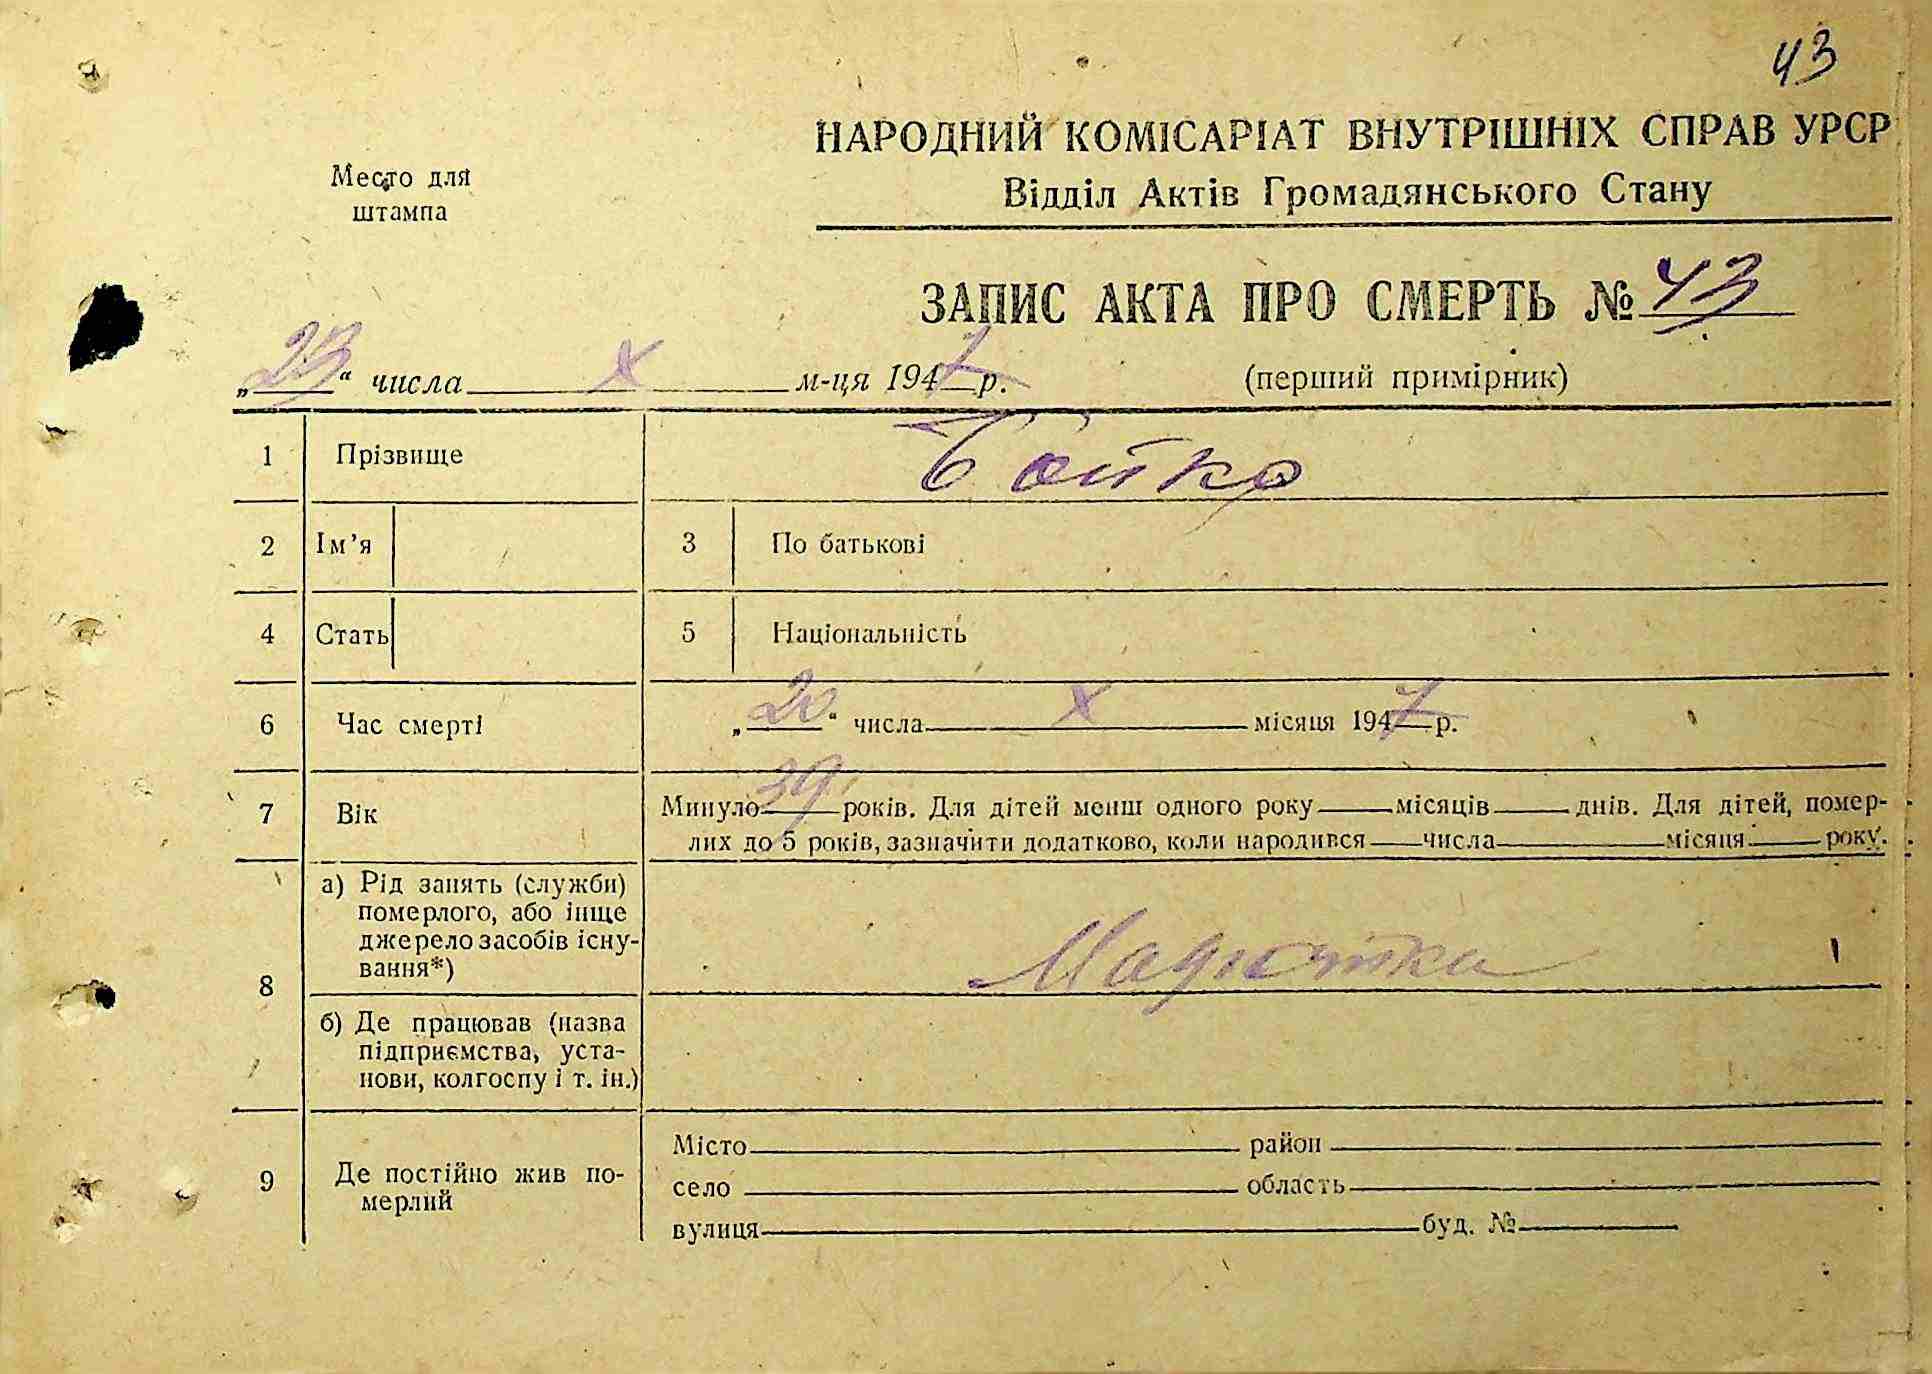 43
НАРОДНИЙ КОМІСАРІАТ ВНУТРІШНІХ СПРАВ УРСР
Место для
штампа
Відділ Актів Громадянського Стану
ЗАПИС АКТА ПРО СМЕРТЬ № 43
„23“ числа X м-ця 1947 р. (перший примірник)
1 Прізвище Бойко
2 Ім’я 3 По батькові
4 Стать 5 Національність
6 Час смерті „20“ числа X місяця 1947 р.
7 Вік Минуло 39 років. Для дітей менш одного року місяців днів. Для дітей, помер-
лих до 5 років, зазначити додатково, коли народився числа місяця року.
8 а) Рід занять (служби)
померлого, або інще
джерело засобів існу-
вання*)
б) Де працював (назва
підприємства, уста-
нови, колгоспу і т. ін.)
9 Де постійно жив по-
мерлий
Місто район
село область
вулиця буд. №